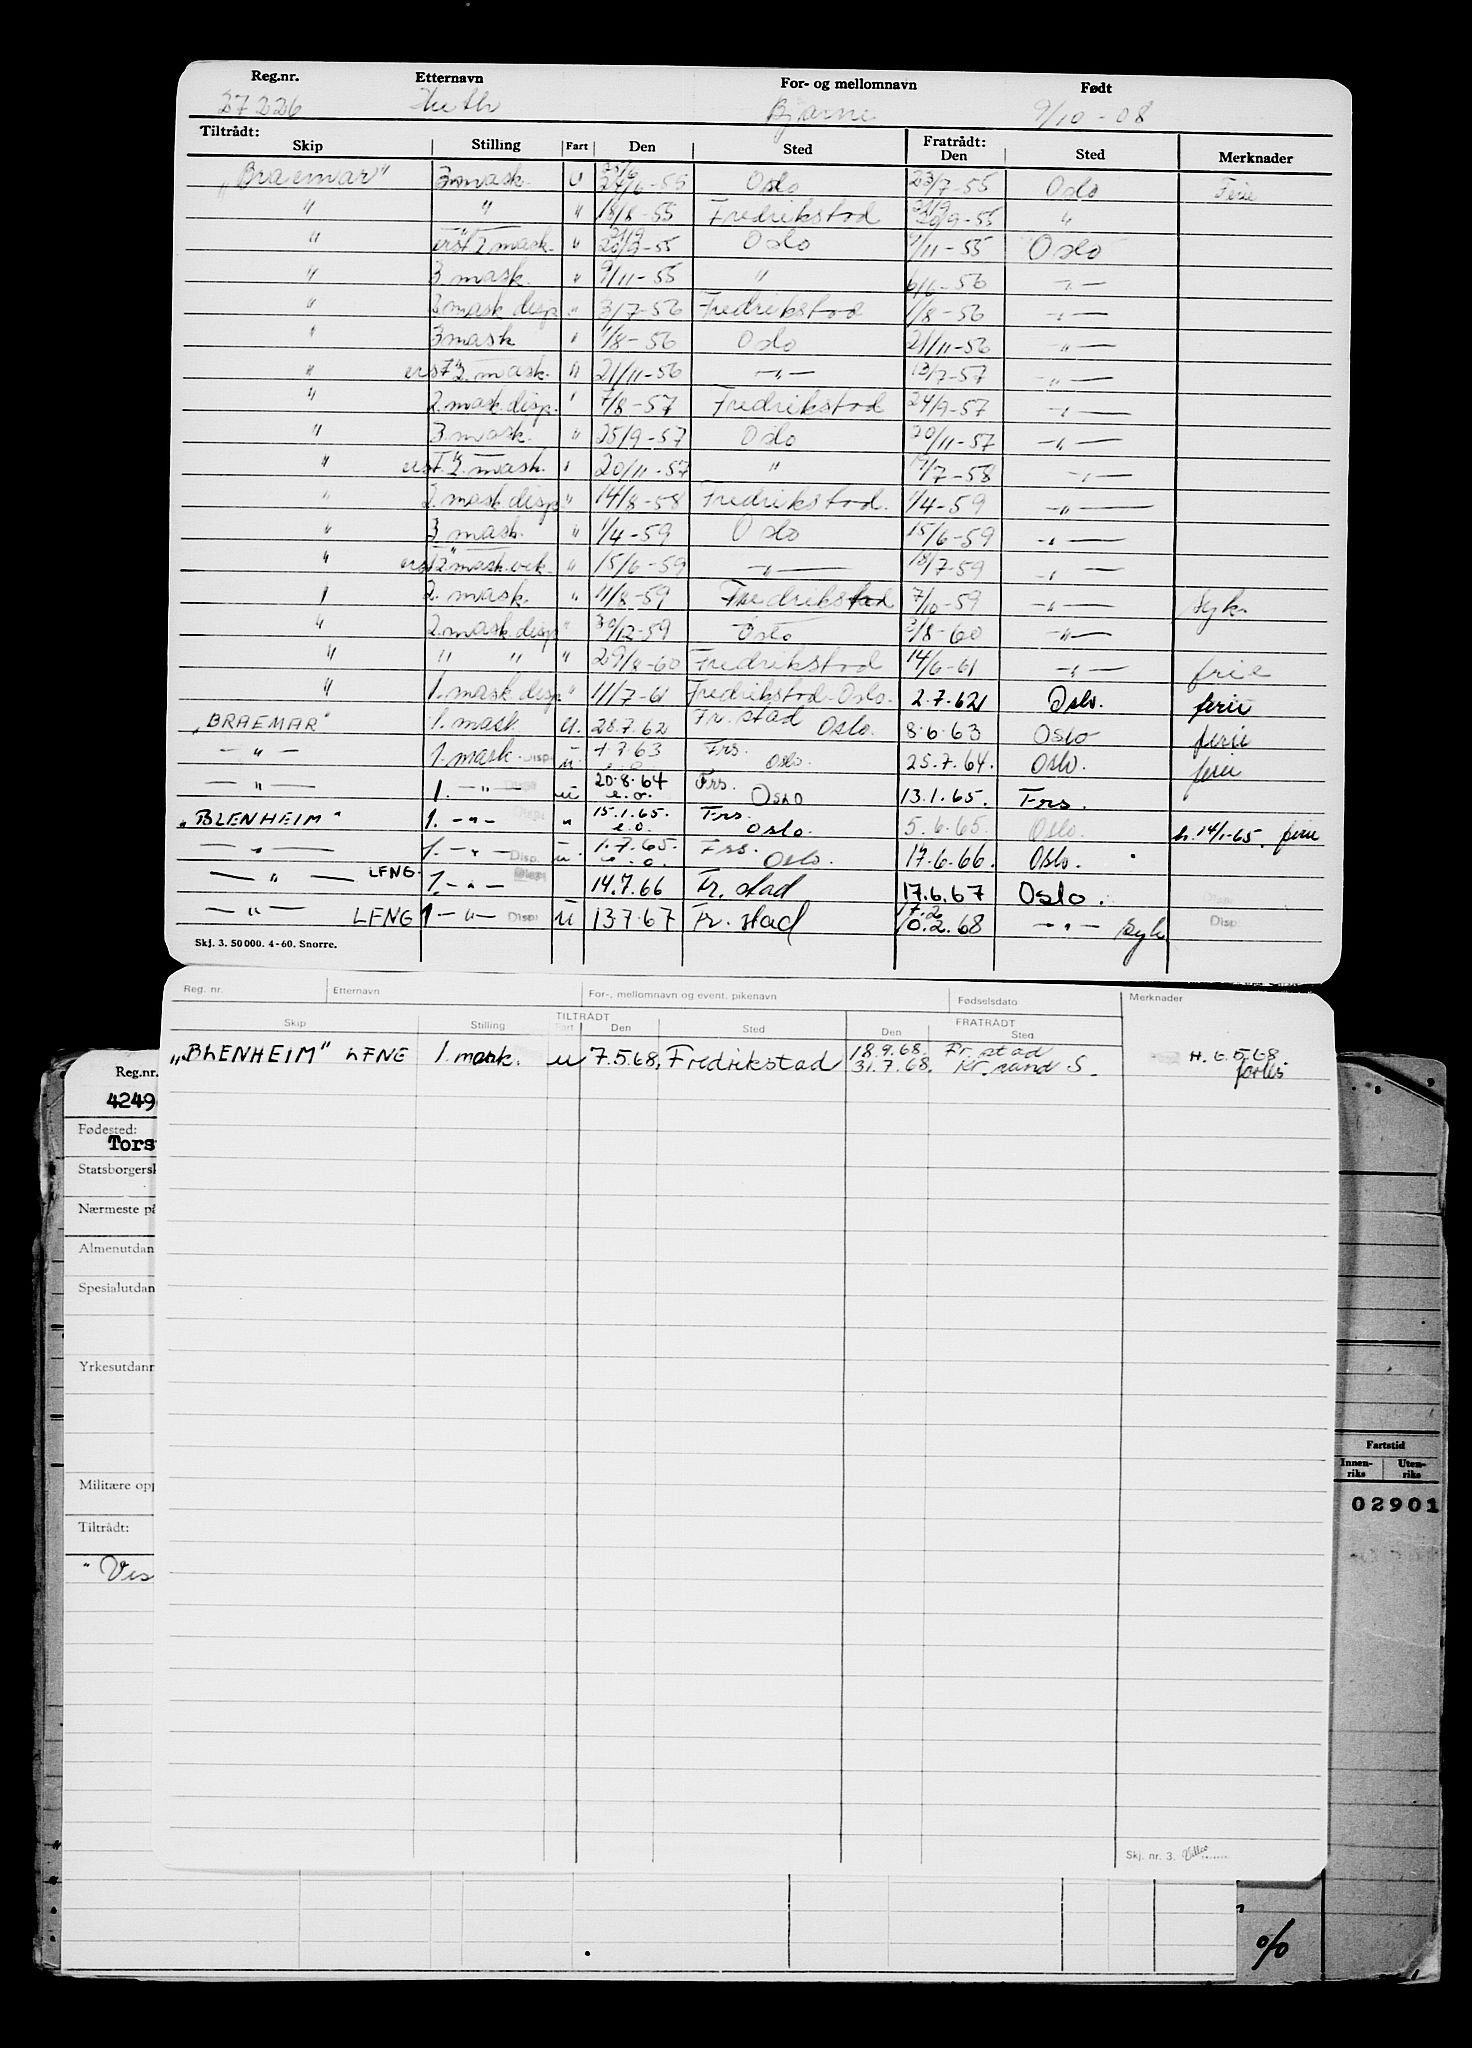 Reg.nr. Etternavn For- og mellomnavn Født
27226 Huth Bjarne 9/10-08
Tiltrådt: Fratrådt:
Skip Stilling Fart Den Sted Den Sted Merknader
"Braemar" 3 mask. u 25/6 24/6-55 Oslo 23/7-55 Oslo Ferie
" " " 18/8-55 Fredrikstad 21/9 20/9-55 "
" erst 2 mask. " 21/9 20/9-55 Oslo 9/11-55 Oslo
" 3 mask. " 9/11-55 " 6/6-56 -"-
" 3 mask disp. " 3/7-56 Fredrikstad 1/8-56 -"-
" 3 mask " 1/8-56 Oslo 21/11-56 -"-
" erst 2. mask. " 21/11-56 -"- 13/7-57 -"-
" 2. mask. disp. " 7/8-57 Fredrikstad 24/9-57 -"-
" 3. mask. " 25/9-57 Oslo 20/11-57 -"-
" erst 2. mask. " 20/11-57 " /7-58 -"-
" 2. mask disp " 14/8-58 Fredrikstad. 1/4-59 -"-
" 3 mask. " 1/4-59 Oslo 15/6-59 -"-
" erst 2 mask. vek. " 15/6-59 -"- 18/7-59 -"-
" 2. mask. " 11/8-59 Fredrikstad 7/10-59 -"- Syk.
" 2. mask. disp " 30/12-59 Oslo 3/8-60 -"-
" " " " 29/8-60 Fredrikstad 14/6-61 -"- ferie
" 1. mask disp " 11/7-61 Fredrikstad-Oslo. 2.7.62 Oslo. ferie
"BRAEMAR" 1. mask u. 28.7.62 Fr. stad Oslo. 8.6.63 Oslo ferie
-"- 1. mask. Disp. u. 1.7.63 e.o. Frs. Oslo. 25.7.64. Oslo. ferie
-"- 1. -"- Disp. u 20.8.64 e.o. Frs. Oslo 13.1.65. Frs.
"BLENHEIM" 1. -"- Disp. " 15.1.65. e.o. Frs. Oslo. 5.6.65. Oslo. h. 14/1-65. ferie
-"- 1. -"- Disp. u. 1.7.65. e.o. Frs. Oslo. 17.6.66. Oslo.
-"- LFNG. 1. -"- Disp. 14.7.66 Fr. stad 17.6.67 Oslo. Disp.
-"- LFNG 1 -"- Disp. u 13.7.67 Fr. stad 7.2 10.2.68 -"- Syk Disp.
Skj. 3. 50 000. 4-60. Snorre.
Reg. nr. Etternavn For-, mellomnavn og event. pikenavn Fødselsdato Merknader
TILTRÅDT FRATRÅDT
Skip Stilling Fart Den Sted Den Sted
"BLENHEIM" LFNG 1. mask. u 7.5.68, Fredrikstad 18.9.68, Fr. stad H. 6.5.68
31.7.68, Kr. sand S. forlis
Reg.nr.
4249
Fødested:
Tors
Statsborgersk
Nærmeste på
Almenutdan
Spesialutdan
Yrkesutdann
Militære opp
Tiltrådt:
"Ves
Fartstid
Innen-riks Uten-riks
02901
Skj. nr. 3.
%